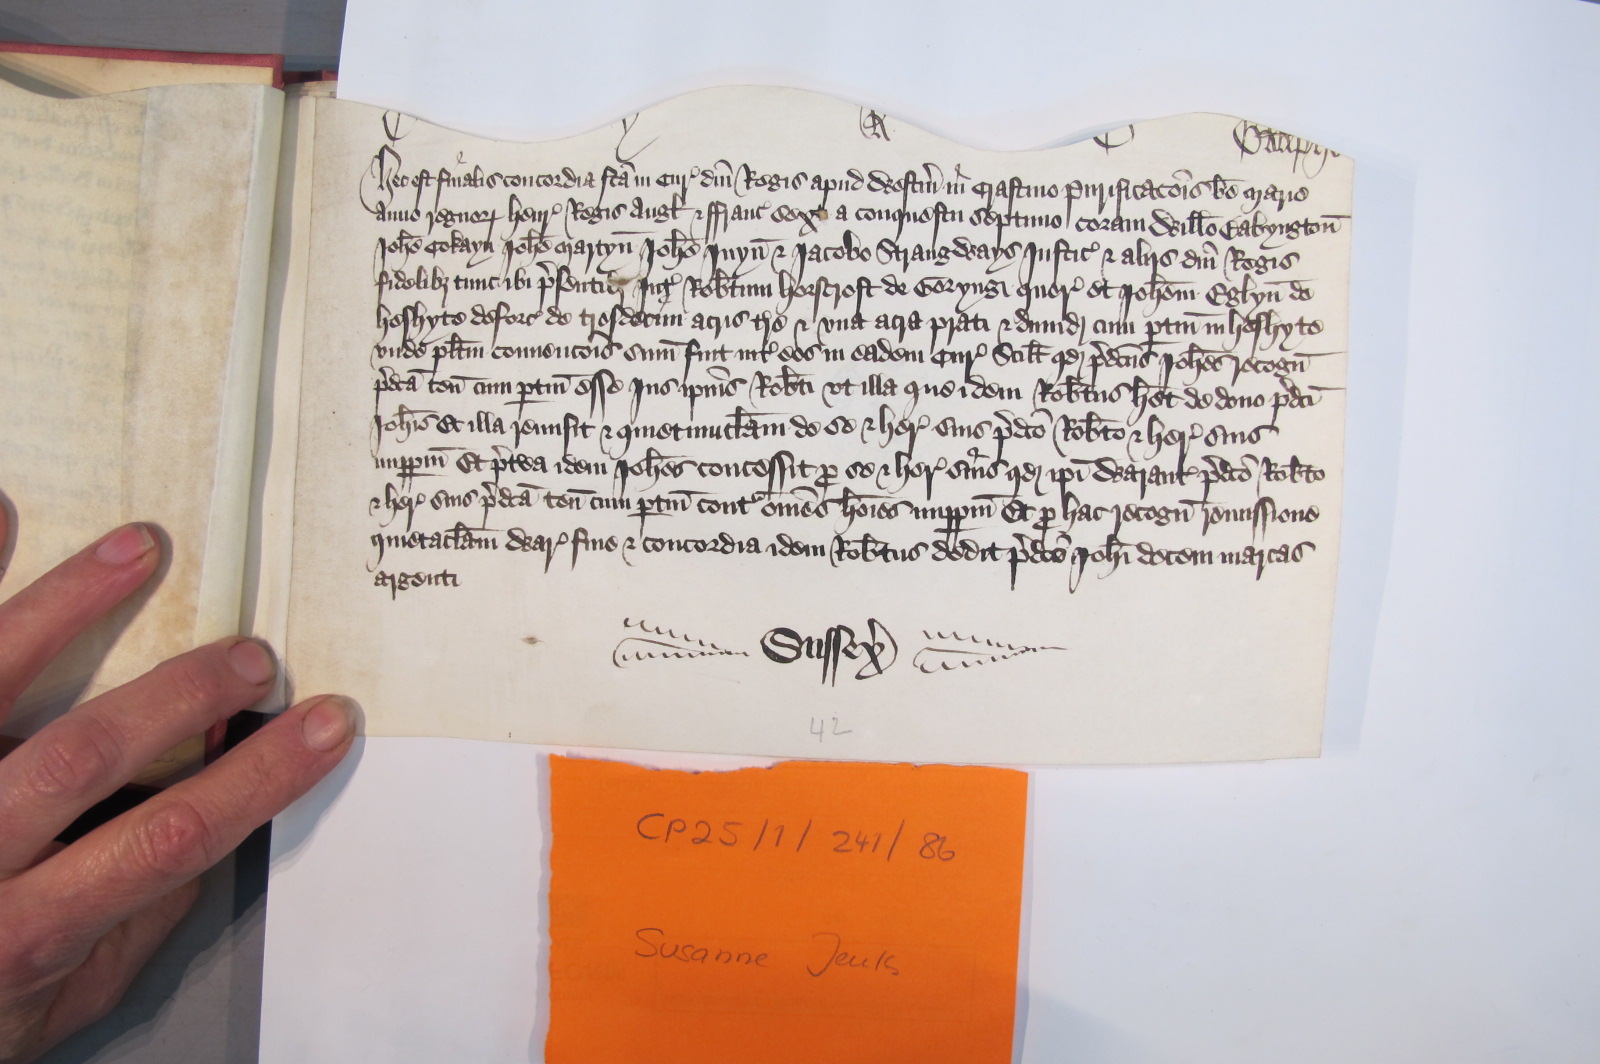 Hec est finalis concordia fcā in Cur' dñi Regis apud Westm̄ in Crastino Purificacōis bē Marie
anno regnorꝝ Henr' Regis Angł & Ffranc' sexti a conquestu septimo coram Wiłło Babyngtoñ
Joħe Cokayn Joħe Martyñ Joħe Juyñ & Jacobo Strangways Justic' & aliis dñi Regis
fidelibꝫ tunc ibi p̄sentibꝫ Int' Rob̄tum Horscroft de Goryng' quer' Et Joħem Eglyñ de
Hefhyte deforc' de tresdecim acris t're & vna acra prati & dimid' cum ptiñ in Hefhyte
vnde płitm conuencōis sum̄ fuit int' eos in eadem Cur' Sciłt qđ p̄dc̄us Joħes recogn̄
p̄dcā ten̄ cum ptiñ esse Jus ip̄ius Rob̄ti vt illa que idem Rob̄tus het de dono p̄dc̄i
Joħis Et illa remisit & quietumclam̄ de se & her' suis p̄dc̄o Rob̄to & her' suis
imppm̄ Et p̄terea idem Joħes concessit pro se & her' suis qđ ip̄i Warant' p̄dc̄o Rob̄to
& her' suis p̄dcā ten̄ cum ptiñ contᵃ om̄es hoīes imppm̄ Et pro hac recogn̄ remissione
quietaclam̄ War' fine & concordia idem Rob̄tus dedit p̄dc̄o Joħi decem marcas
argenti
Sussex'
42
CP25/1/241/86
Susanne Jenks